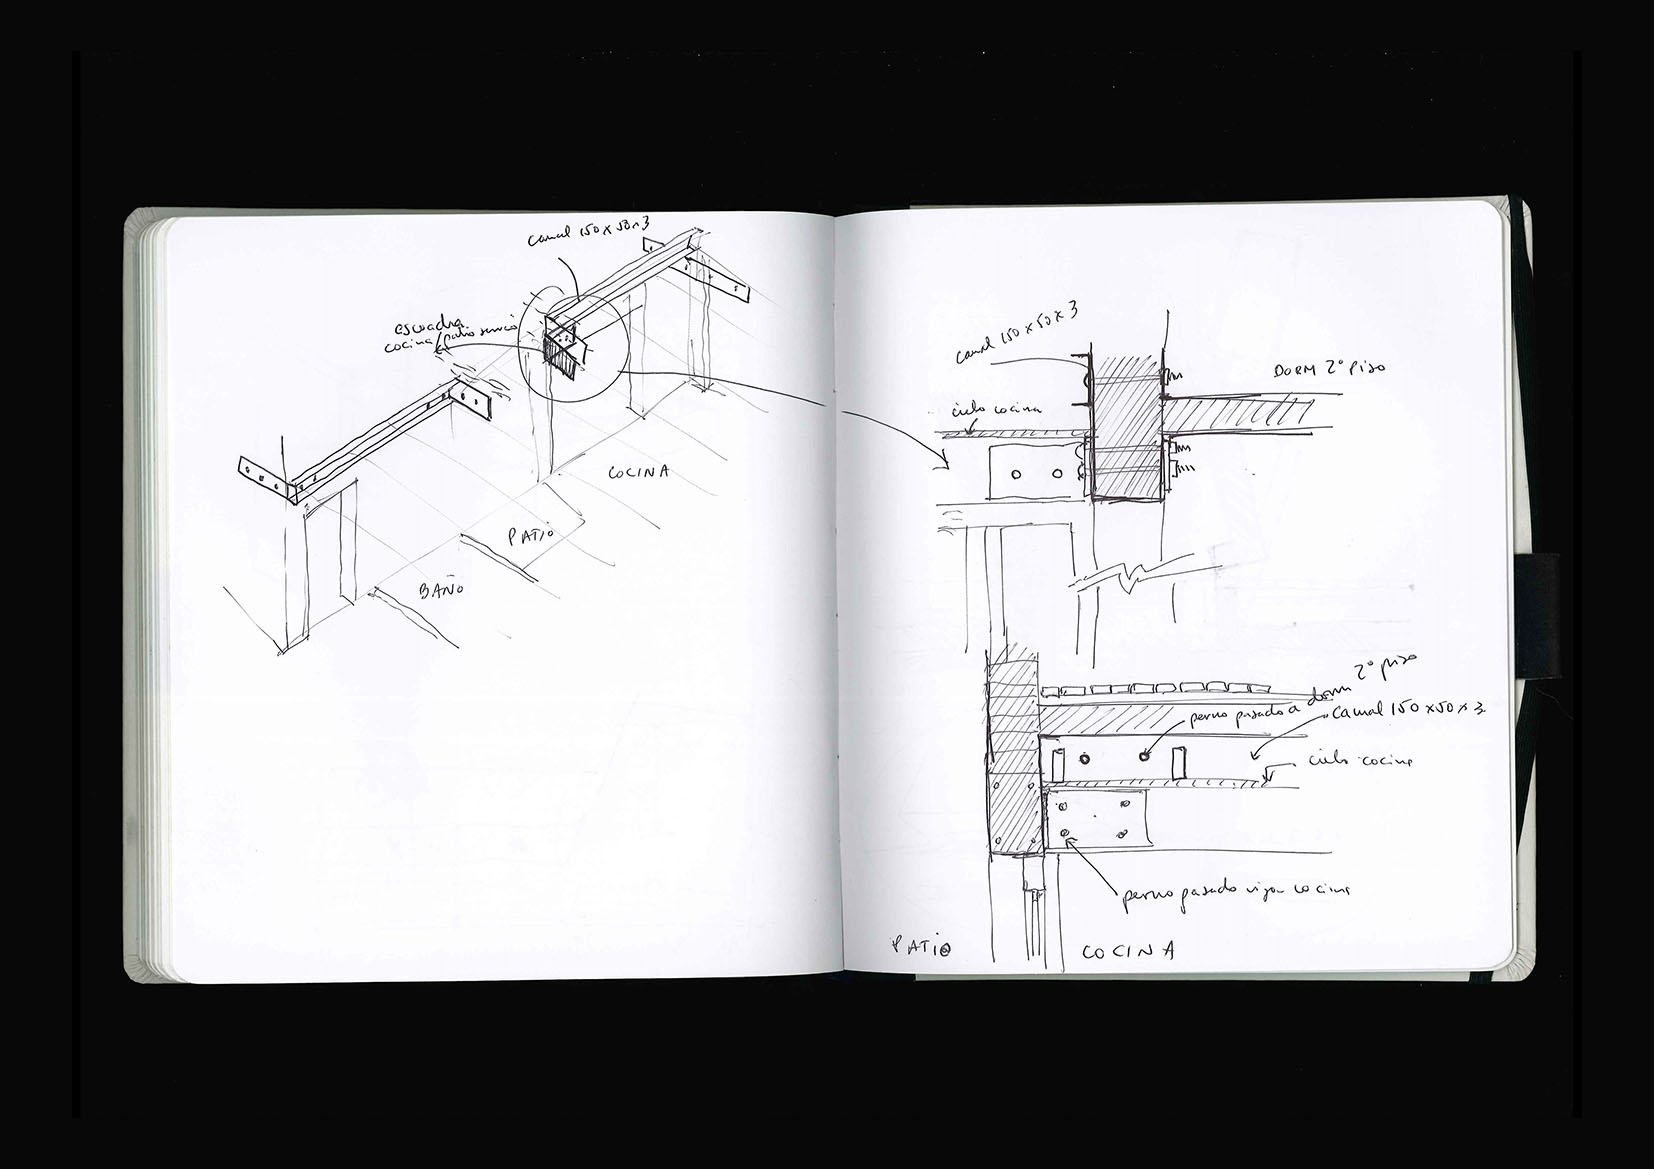 canal 150 x 50 x 3
escuadra
cocina/patio servicio
COCINA
PATIO
BAÑO
canal 150 x 50 x 3
DORM 2° piso
cielo cocina
2° piso
perno pasado a dorm
canal 150 x 50 x 3
cielo cocina
perno pasado viga cocina
PATIO
COCINA